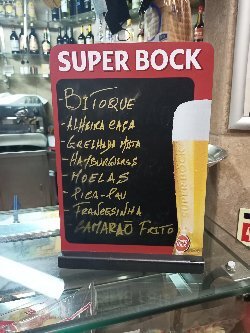 SUPER BOCK
BITOQUE
-ALHEIRA CAÇA
-GRELHADA MISTA
-HAMBURGUERSS
-MOELAS
-PICA-PAU
-FRANCESINHA
-CAMARÃO FRITO
SUPERBOCK